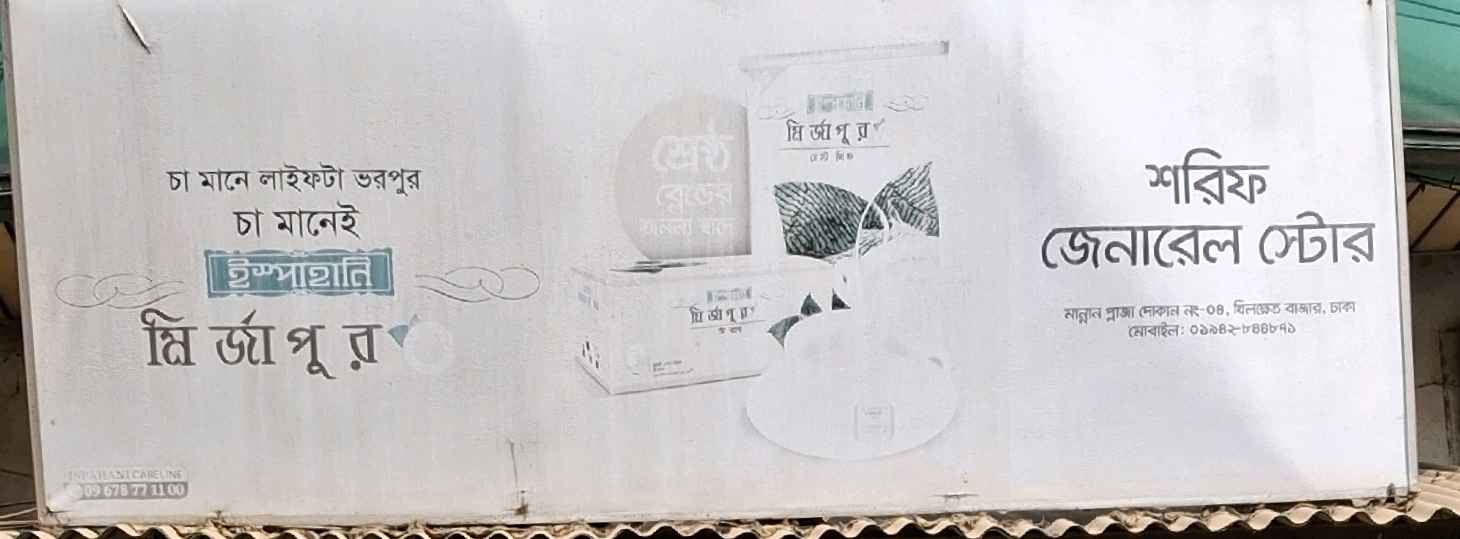 চা মানে লাইফটা ভরপুর
চা মানেই
ইস্পাহানি
মির্জাপুর
ISPAHANI CARELINE
09 678 77 11 00
শ্রেষ্ঠ
ব্লেন্ডের
অনন্য স্বাদে
ইস্পাহানি
মির্জাপুর
বেস্ট লিফ
মির্জাপুর
শরিফ
জেনারেল স্টোর
মান্নান প্লাজা দোকান নং-০৪, খিলক্ষেত বাজার, ঢাকা
মোবাইল: ০১৯৪২-৮৪৪৮৭১